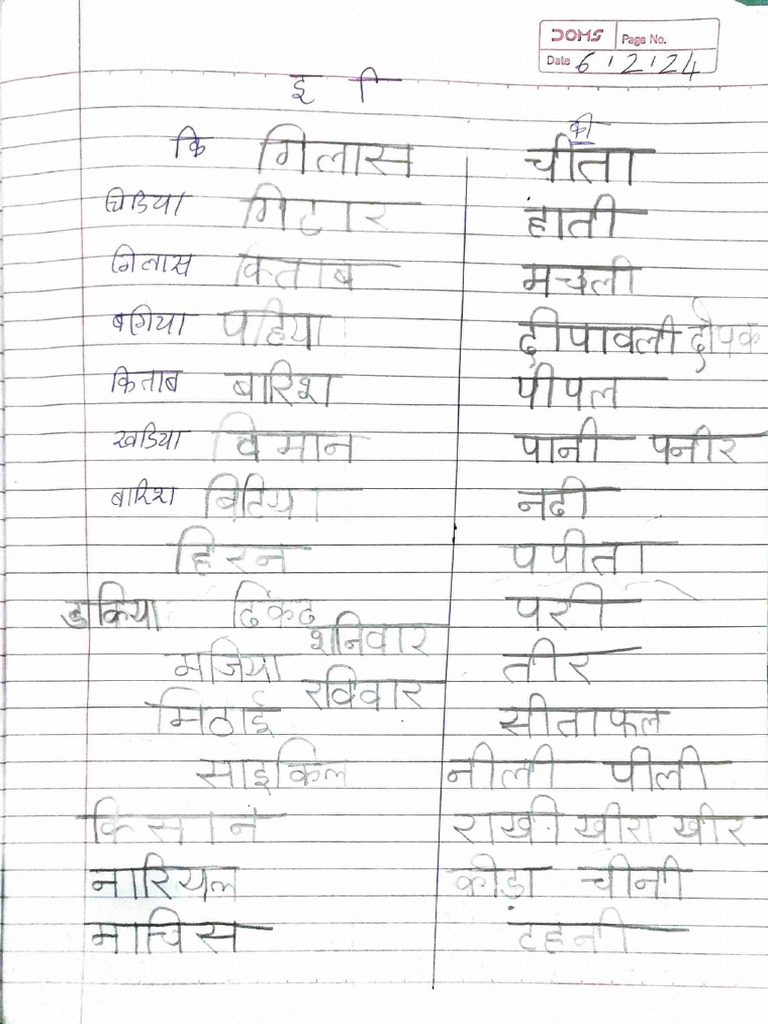 DOMS Page No.
Date 6.2.24
इ ि
कि गिलास
चिडिया गिटार
गिलास किताब
बगिया पहिया
किताब बारिश
खडिया विमान
बारिश बिटिया
हिरन
डाकिया टिकट
शनिवार
मजिया
रविवार
मिठाई
साइकिल
किसान
नारियल
माचिस
की
चीता
हाती
मछली
दीपावली दीपक
पीपल
पानी पनीर
नदी
पपीता
परी
तीर
सीताफल
नीली पीली
राखी खीरा खीर
कीड़ा चीनी
टहनी